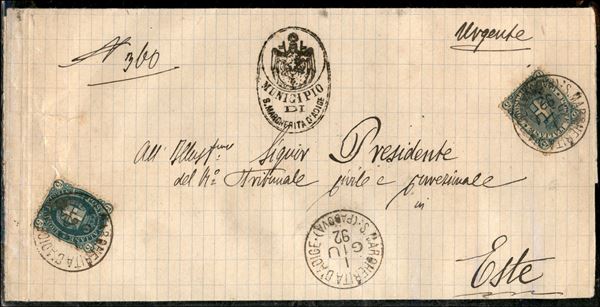 N° 360
Urgente
MUNICIPIO
DI
S. MARGHERITA D'ADIGE
All' Illust.mo Signor Presidente
del R° Tribunale civile e correzionale
in
Este
S. MARGHERITA D'ADIGE (PADOVA)
1
GIU
92